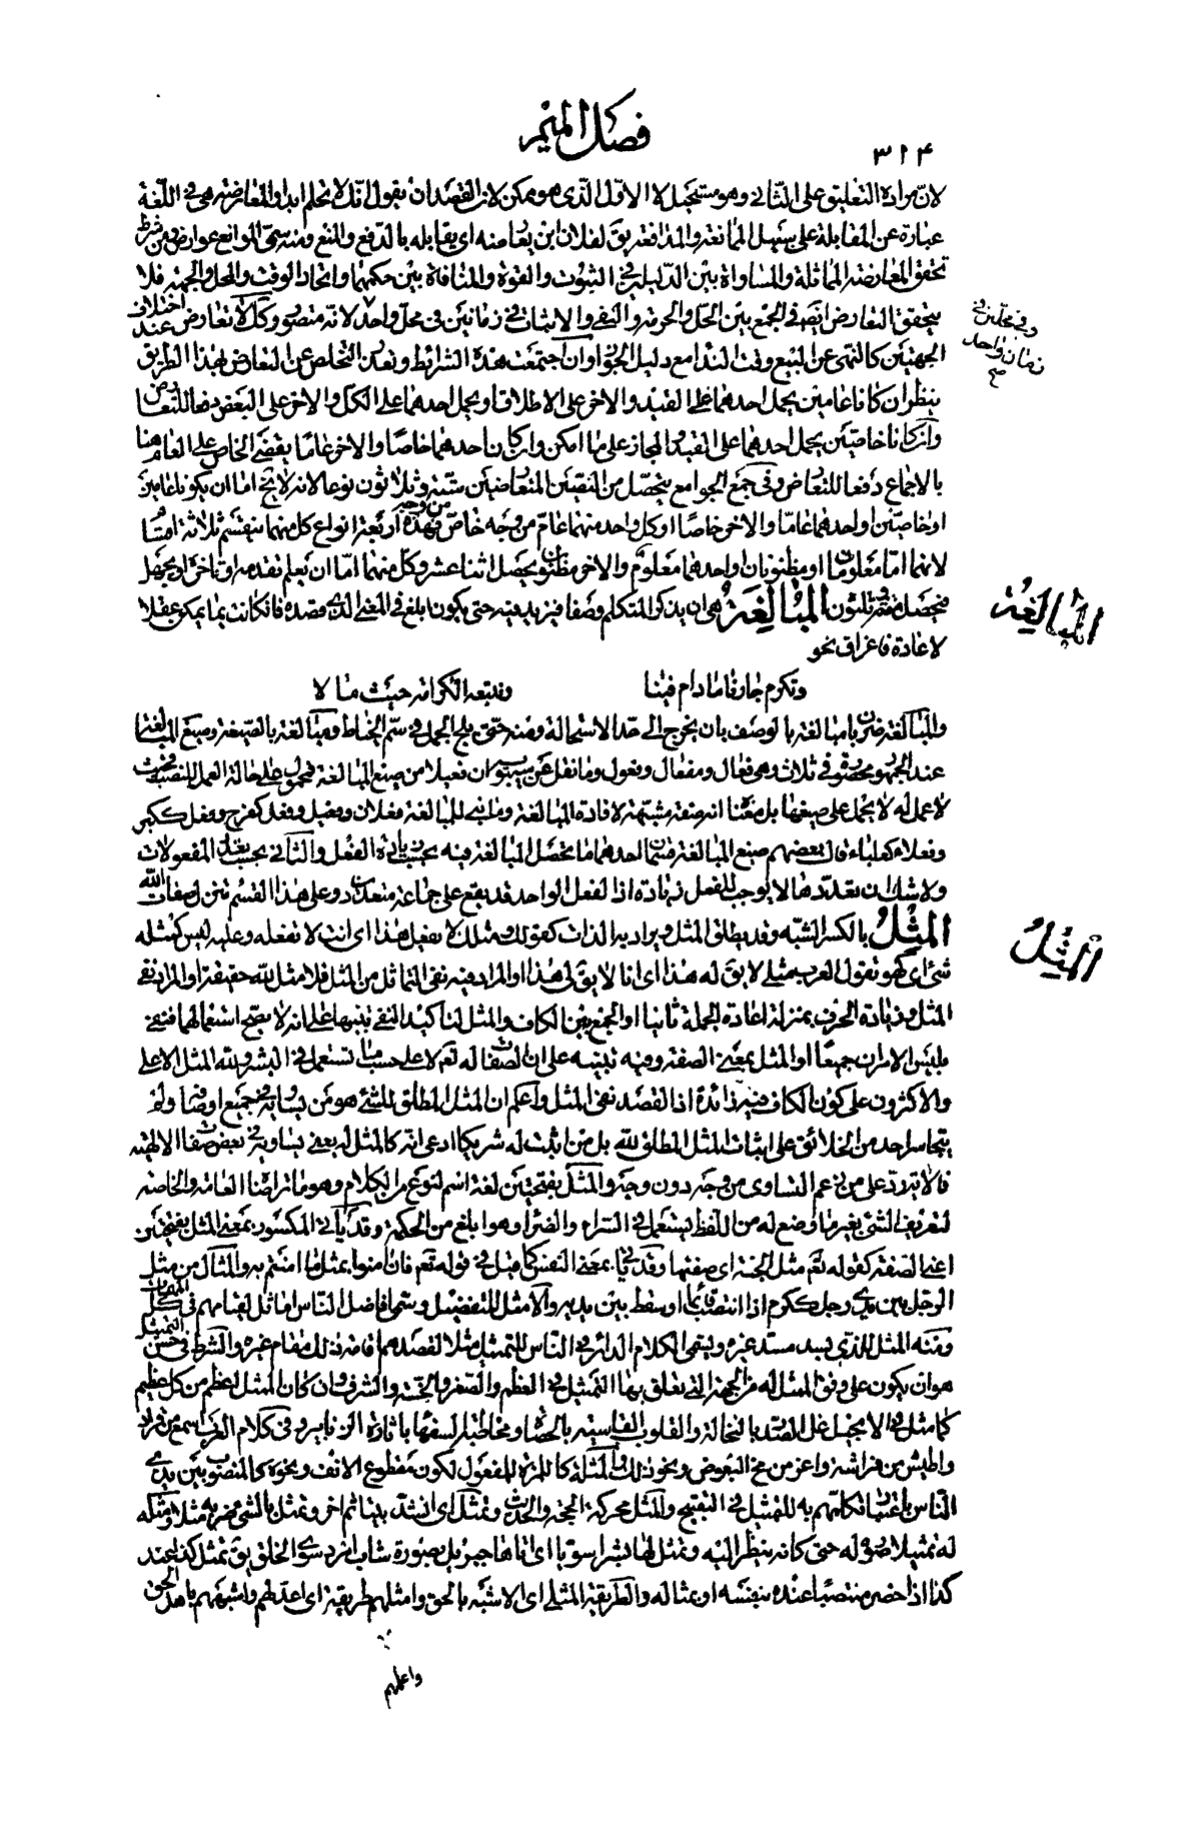 فصل الميم
٣١٤
لان مراده التعليق على الثانى وهو مستحيل لا الاول الذى هو ممكن لان القصد ان يقول انك لا تحلم ابدا والمعارضة هى فى اللغة
عبارة عن المقابلة على سبيل الممانعة والمدافعة يق لفلان ابن يعارضه اى يقابله بالدفع والمنع ومنه سمى الموانع عوارض ومن شرط
تحقق المعارضة المماثلة والمساواة بين الدليلين فى الثبوت والقوة والمنافاة بين حكمهما واتحاد الوقت والمحل والجهة فلا
يتحقق التعارض فى الجمع بين الحل والحرمة والنفى والاثبات فى زمانين فى محل واحد لانه متصور وكذا لا تعارض عند اختلاف
وفى محلين فى
زمان واحد
صح
الجهتين كالنهى عن البيع وقت النداء مع دليل الجواز وان اجتمعت هذه الشرائط وتعذر التخلص عن التعارض بهذا الطريق
ينظر ان كانا عامين يحمل احدهما على القيد والاخر على الاطلاق او يحمل احدهما على الكل والاخر على البعض دفعا للتعارض
وان كانا خاصين يحمل احدهما على القيد او المجاز على ما امكن وان كان احدهما خاصا والاخر عاما يقضى الخاص على العام هنا
بالاجماع دفعا للتعارض وفى جمع الجوامع يتحصل من النصين المتعارضين ستة وثلاثون نوعا لانه لا يخ اما ان يكونا عامين
او خاصين او احدهما عاما والاخر خاصا او كل واحد منهما عام من وجه خاص من وجه فهذه اربعة انواع كل منها ينقسم ثلاثة اقسام
لانهما اما معلومان او مظنونان او احدهما معلوم والاخر مظنون يحصل اثنا عشر وكل منها اما ان يعلم تقدمه او تأخره او يجهل
فيحصل ستة وثلثون المبالغة هى ان يذكر المتكلم وصفا فيزيد فيه حتى يكون ابلغ فى المعنى الذى قصده فان كانت بما يمكن عقلا
المبالغة
لا عادة فاغراق نحو
ونكرم جارنا ما دام فينا ونتبعه الكرامة حيث مالا
والمبالغة ضربان مبالغة بالوصف بان يخرج الى حد الاستحالة ومنه حتى يلج الجمل فى سم الخياط ومبالغة بالصيغة وصيغ المبالغة
عند الجمهور محصورة فى ثلاث وهى فعال ومفعال وفعول وما نقل عن سيبويه ان فعيلا من صيغ المبالغة فمحمول على حالة العمل للنصب فحيث
لا عمل له لا يحمل على صيغها بل معنا انه صفة مشبهة لافادة المبالغة وما بنى للمبالغة فعلان وفعيل وفعل كفرح وفعل ككبر
وفعلاء كعلياء قال بعضهم صيغ المبالغة قسمان احدهما ما تحصل المبالغة فيه بحسب زيادة الفعل والثانى بحسب تعدد المفعولات
ولا شك ان تعددها لا يوجب للفعل زيادة اذ الفعل الواحد قد يقع على جماعة متعددين وعلى هذا القسم تنزل صفات الله
المثل بالكسر الشبه وقد يطلق المثل ويراد به الذات كقولك مثلك لا يفعل هذا اى انت لا تفعله وعليه ليس كمثله
المثل
شئ اى كهو تقول العرب مثلى لا يق له هذا اى انا لا يق لى هذا او المراد فيه نفى التماثل من المثل فلا مثل لله حقيقة او المراد نفى
المثل وزيادة الحرف بمنزلة اعادة الجملة ثانيا او الجمع بين الكاف والمثل لتأكيد النفى تنبيها على انه لا يصح استعمالهما فنفى
بليس الامران جميعا او المثل بمعنى الصفة وفيه تنبيه على ان الصفات له تع لا على حسب ما تستعمل فى البشر ولله المثل الاعلى
والاكثرون على كون الكاف فيه زائدة اذ القصد نفى المثل واعلم ان المثل المطلق للشئ هو من يساويه فى جميع اوصافه ولم
يتجاسر احد من الخلائق على اثبات المثل المطلق لله بل من اثبت له شريكا ادعى انه كالمثل له يعنى يساويه فى بعض صفات الالهية
فالاية رد على من زعم التساوى من وجه دون وجه والمثل بفتحتين لغة اسم لنوع من الكلام وهو ما تراضاه العامة والخاصة
لتعريف الشئ بغير ما وضع له من اللفظ يستعمل فى السراء والضراء وهو ابلغ من الحكمة وقد يأتى المكسور بمعنى المثل بفتحتين
اعنى الصفة كقوله تع مثل الجنة اى صفتها وقد يأتى بمعنى النفس كما قيل فى قوله تع فان امنوا بمثل ما امنتم به والمثال من مثل
الرجل بين يدى رجل ككرم اذا انتصب قائما او سقط بين يديه والامثل للتفضيل وسمى افاضل الناس اماثل لقيامهم فى كل المهمات
ومنه المثل للذى يسد مسد غيره ويسمى الكلام الدائر فى الناس للتمثيل مثلا لقصدهم اقامة ذلك مقام غيره والشرط فى حسن التمثيل
هو ان يكون على وفق الممثل له من الجهة التى تعلق بها التمثيل فى العظم والصغر والخسة والشرف وان كان الممثل اعظم من كل عظيم
كما مثل فى الانجيل غل الصدر بالنخالة والقلوب القاسية بالحصاة ومخاطبة السفهاء باثارة الزنابير وفى كلام العرب اسمع من قراد
واطيش من فراشة واعز من مخ البعوض ونحو ذلك والمثلة كالمرة للمفعول لكون مقطوع الانف ونحوه كالمنصوب بين يدى
الناس باعتبار تكلمهم به للتمثيل فى التقبيح والمثل محركة الحجة والحديث وتمثل اى انشد بيتا ثم اخر وتمثل بالشئ ضربه مثلا ومثله
له تمثيلا صوره له حتى كانه ينظر اليه وتمثل لها بشرا سويا اى اتاها جبريل بصورة شاب امرد سوى الخلق يق تمثل كذا عند
كذا اذا حضر منتصبا عنده بنفسه او بمثاله والطريقة المثلى اى الاشبه بالحق وامثلهم طريقة اى اعدلهم واشبههم باهل الحق
واعلمهم